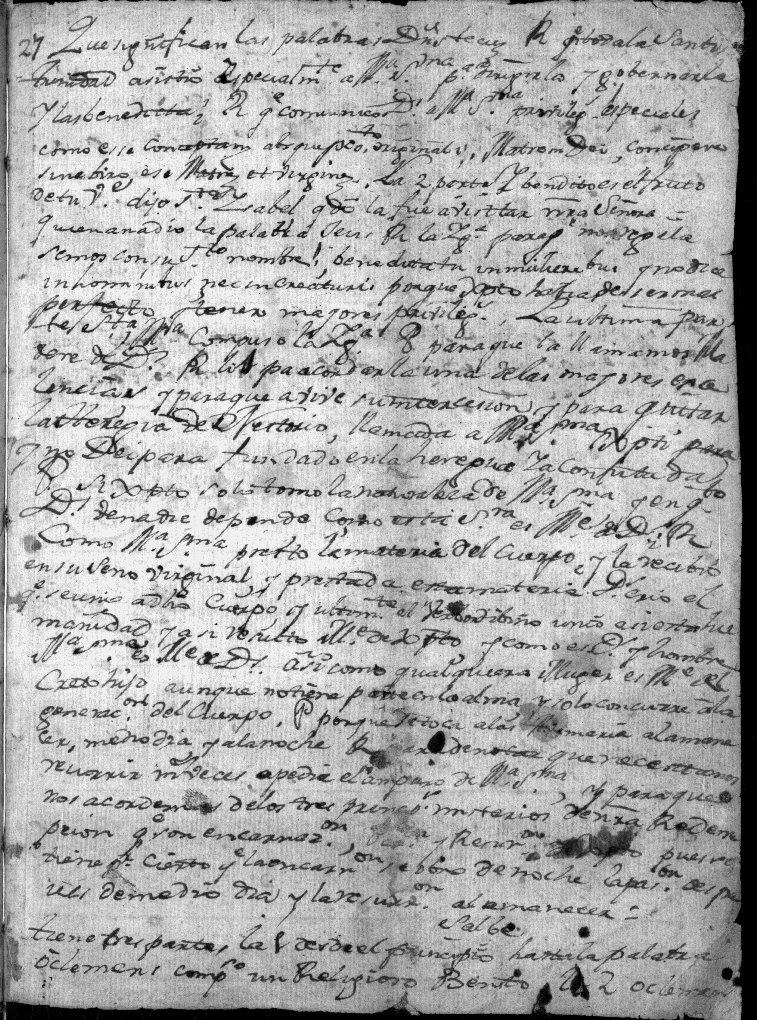 27 Que significan las palabras Dns tecu R q toda la Santi
trinidad asistio Especialmte a Ma Sma pa dirigirla y gobernarla
y las benedicta R qe comunico Ds a Ma Sma privileg especiales
como esse Conceptam absque peccto originali, Matrem Dei, concipere
sine viro, esse Matre et Virgine. La 2 parte Y bendito es el fruto
de tu Ve dijo Sta Ysabel qdo la fue a visitar nra Señora
quien añadio la palabra Jesus R la Yga para q nos regala
semos con su Sto nombre, benedicta tu in mulieribus y no dice
in hominibus nec in creaturis porque Xpto havia de ser mas
perfecto y tener mayores privilegs. La ultima par
te Sta Ma Compuso la Yga P para que la llamamos Ma
dre de Ds. R lo 1 pa acordarla una de las mayores exce
lencias y para que avive su intercesion y para quitar
la Heregia de Nestorio, llamada a Ma Sma Xpti para
y no Deipara fundado en la heregia Ya Confutada
P Si Xpto solo tomo la naturaleza de Ma Sma y en q
Ds de nadie depende Como esta Sra es Me de Ds R
Como Ma Sma presto la materia del Cuerpo, y la recibio
en su seno virginal y prestada esta materia Dios el
qe se unio a dho Cuerpo y ultimte el Verbo divino unio a si esta hu
manidad y asi resulto Me de Xpto y como es Ds y hombre
Ma Sma es Me de Ds. asi como qualquiera Muger es Me del
Cuerpo hijo aunque no tiene parte en lo alma y solo concurre a la
generacon del Cuerpo. P porque se toca a las Ave marias al amane
cer, medio dia y a la noche R para denotar que necesitamos
recurrir mchs veces a pedir el amparo de Ma Sma, y para que
nos acordemos de los tres princs misterios de nra Redem
pcion qe son encarnazon, y Resurron de Xpto pues se
tiene pr cierto qe la encarnon se obro de noche la pason despu
ues de medio dia y la resurron al amanecer.
Salbe
tiene tres partes, la 1 desde el principio hasta la palabra
o clemens compo un Religioso Benito la 2 o clemens